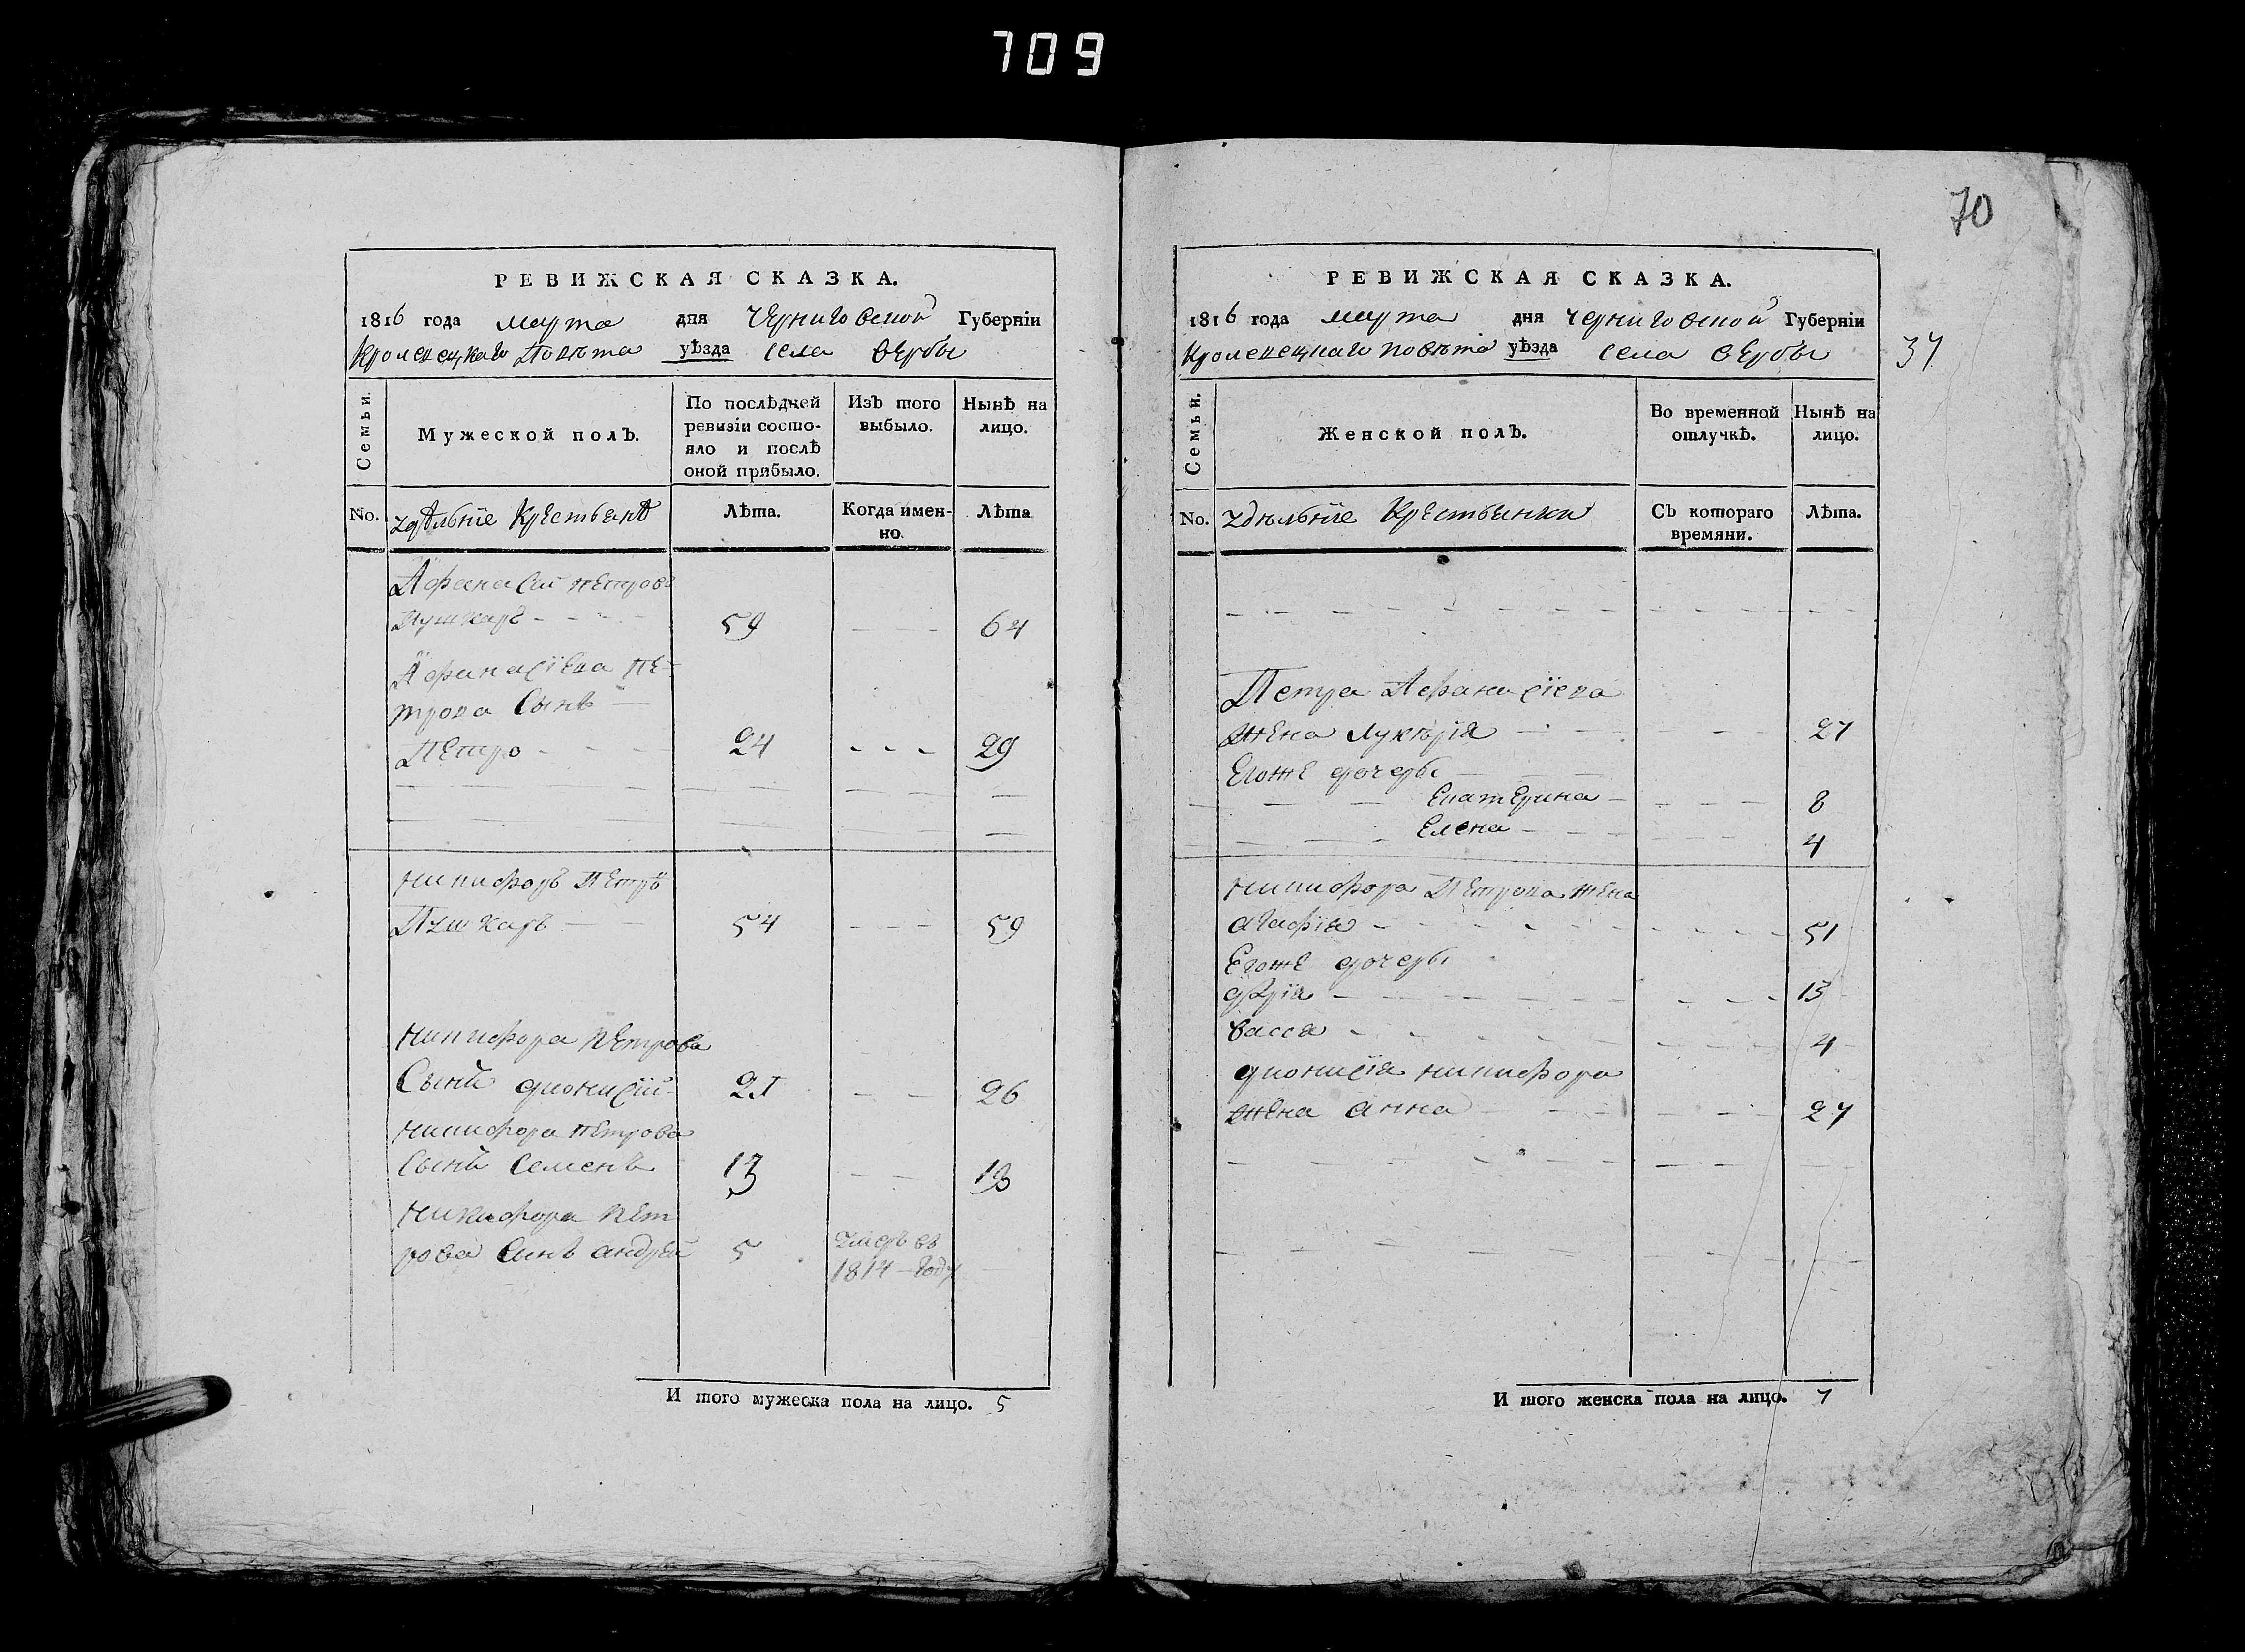 709
70
37
РЕВИЖСКАЯ СКАЗКА.
1816 года марта дня Черниговской Губернїи
Кролевецкаго Повѣта уѣзда села Вербы
Семьи.
Мужеской полЪ.
По послѣдней ревизїи состояло и послѣ оной прибыло.
ИзЪ того выбыло.
НынѣЪ на лицо.
No.
Лѣта.
Когда именно.
Лѣта
Афанасий Петровъ
Пушкаръ 59 64
Афанасїева Пе-
трова Сынъ
Петро 24 29
Никифоръ Петръ
Пушкаръ 54 59
Никифора Петрова
Сынъ Дионисїй 21 26
Никифора Петрова
Сынъ Семенъ 13 18
Никифора Пет
рова Синъ андрей 5 умеръ въ
1814 году
И того мужеска пола на лицо. 5
РЕВИЖСКАЯ СКАЗКА.
1816 года марта дня Черниговской Губернїи
Кролевецкаго повѣта уѣзда села Вербы
Семьи.
Женской полЪ.
Во временной отлучкѣ.
Нынѣ на лицо.
No.
СЪ котораго времяни.
Лѣта.
Петра Афанасїева
жена Лукѣрїя 27
Егоже дочеры
Екатерина 8
Елена 4
Никифора Петрова жена
агафїя 51
Егоже дочеры
15
васса 4
дионисїя никифора
жена анна 27
И того женска пола на лицо. 7